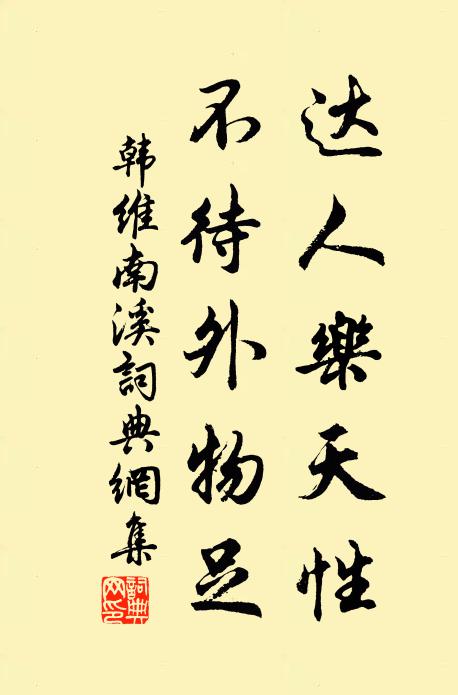 达人樂天性
不待外物足
韩維南溪詞典網集
詞典網印